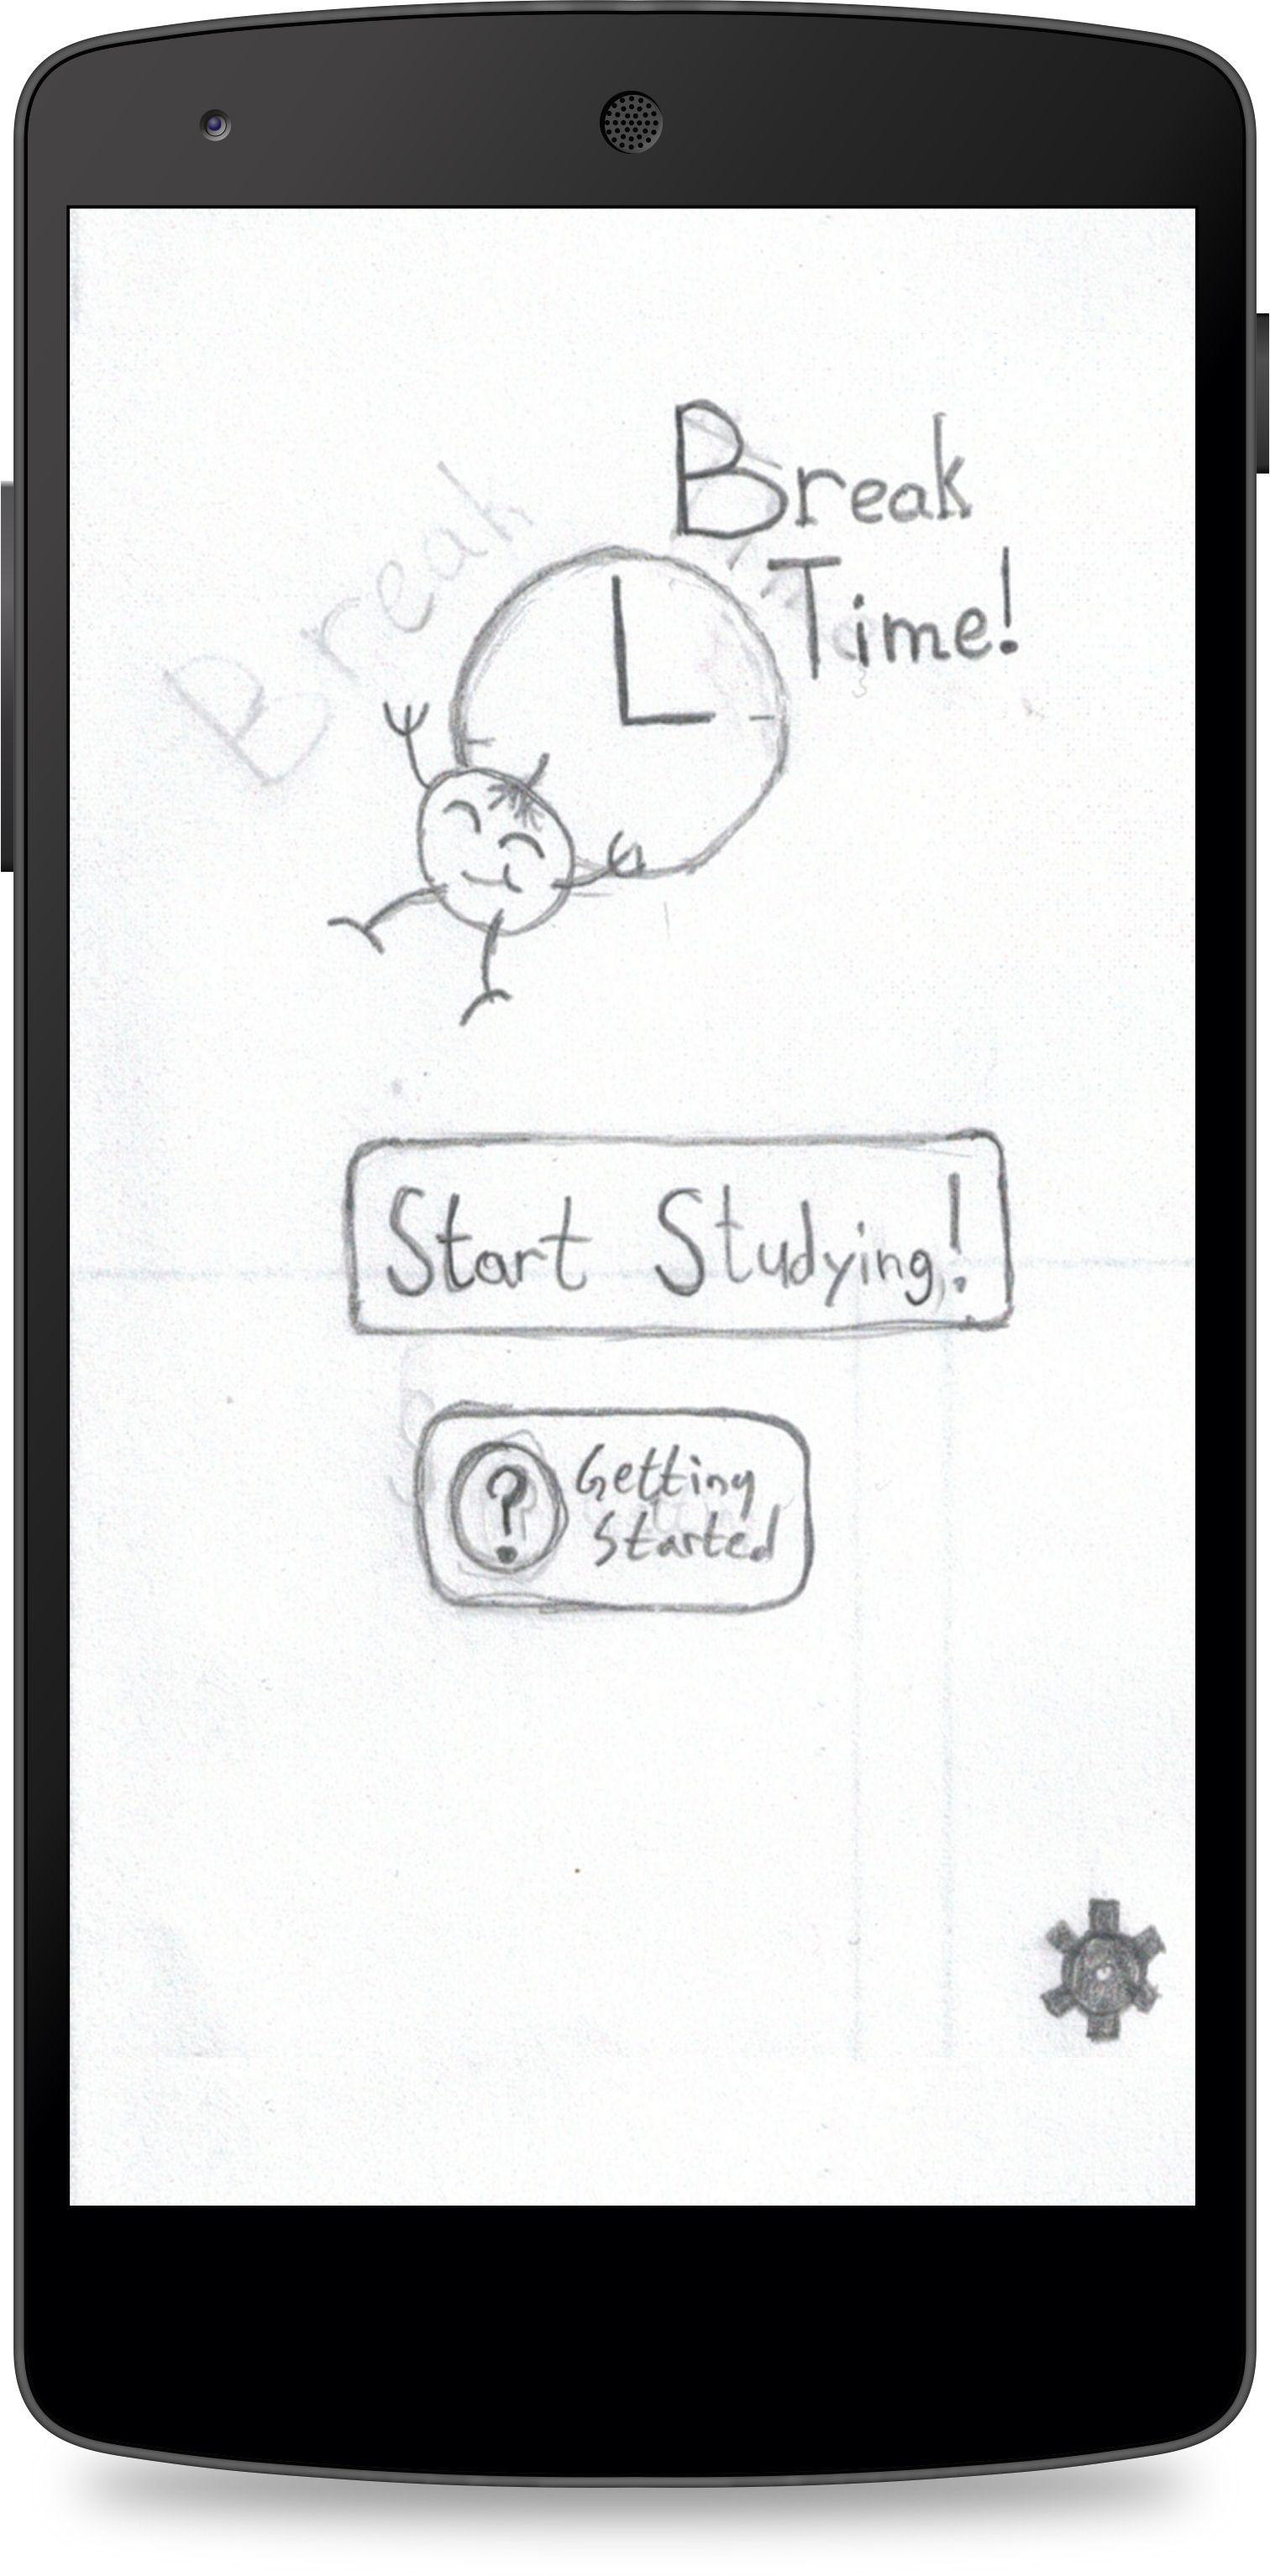 Break
Break
Time!
Start Studying!
?
Getting
Started